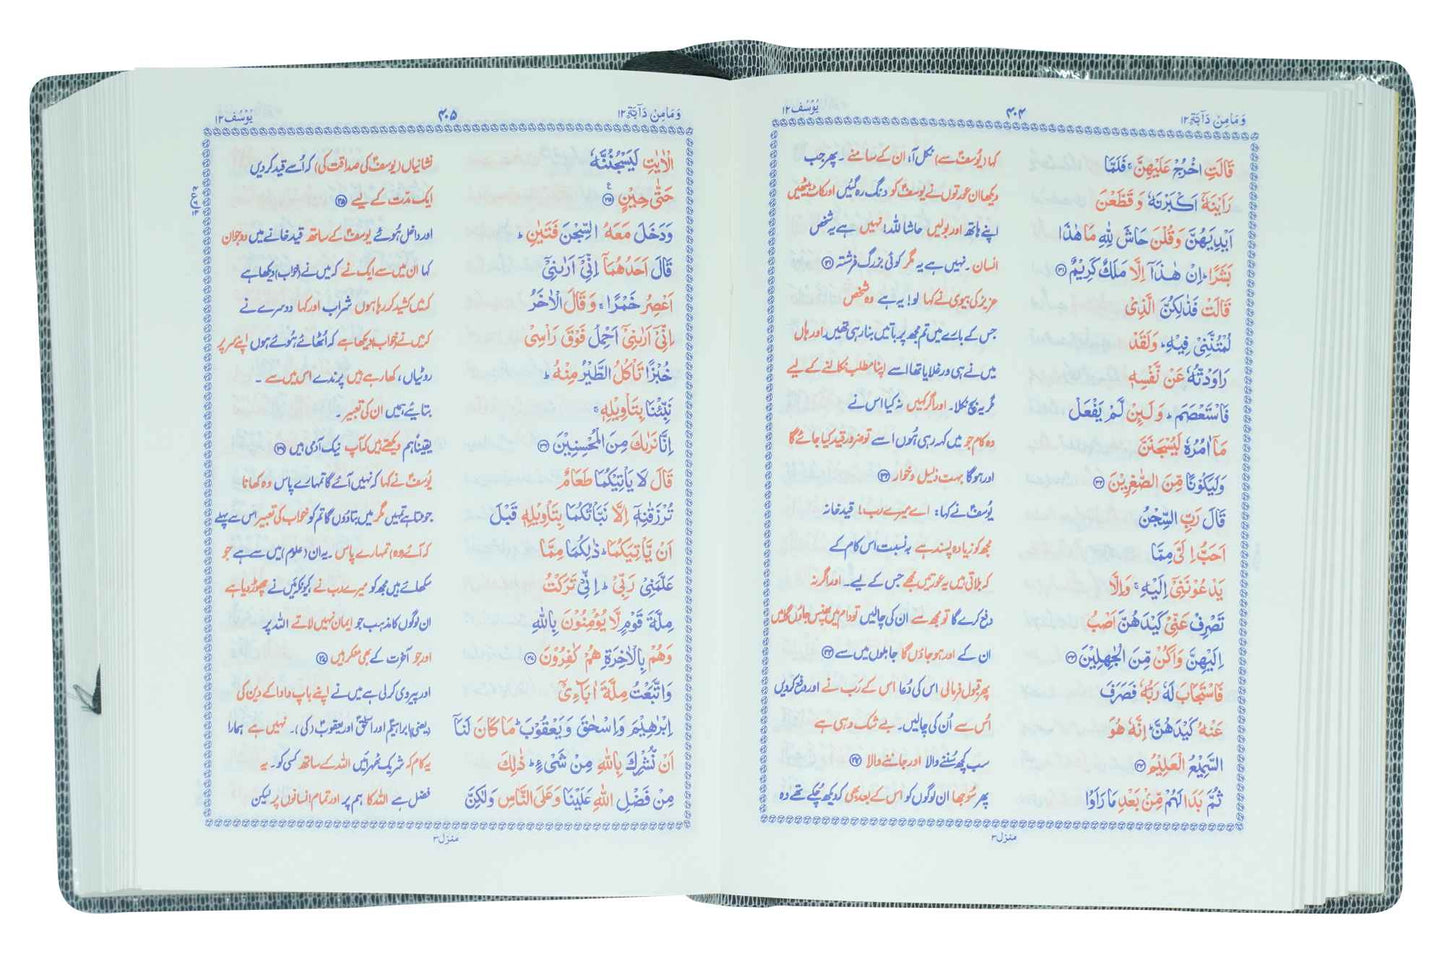 وَمَا مِنْ دَآبَّةٍ ۱۲
۴۰۴
یُوْسُف ۱۲
قَالَتِ اخْرُجْ عَلَیْهِنَّ ۚ فَلَمَّا
کہا (یُوسفؑ سے) نکل آ، ان کے سامنے ۔ پھر جب
رَاَیْنَهٗۤ اَكْبَرْنَهٗ وَ قَطَّعْنَ
دیکھا ان عورتوں نے یوسفؑ کو دنگ رہ گئیں اور کاٹ بیٹھیں
اَیْدِیَهُنَّ وَقُلْنَ حَاشَ لِلّٰهِ مَا هٰذَا
اپنے ہاتھ اور بولیں حاشا للہ! نہیں ہے یہ شخص
بَشَرًا ؕ اِنْ هٰذَاۤ اِلَّا مَلَكٌ كَرِیْمٌ ۳۱
انسان ۔ نہیں ہے یہ مگر کوئی بزرگ فرشتہ ۳۱
قَالَتْ فَذٰلِكُنَّ الَّذِیْ
عزیز کی بیوی نے کہا لو! یہ ہے وہ شخص
لُمْتُنَّنِیْ فِیْهِ ؕ وَلَقَدْ
جس کے بارے میں تم مجھ پر باتیں بنا رہی تھیں، اور ہاں
رَاوَدْتُّهٗ عَنْ نَّفْسِهٖ
میں نے ہی ورغلایا تھا اسے اپنا مطلب نکالنے کے لیے
فَاسْتَعْصَمَ ؕ وَلَىِٕنْ لَّمْ یَفْعَلْ
مگر یہ بچ نکلا۔ اور اگر کہیں نہ کیا اس نے
مَاۤ اٰمُرُهٗ لَیُسْجَنَنَّ
وہ کام جو میں کہہ رہی ہُوں اسے تو ضرور قید کیا جائے گا
وَلَیَكُوْنًا مِّنَ الصّٰغِرِیْنَ ۳۲
اور ہوگا بہت ذلیل و خوار ۳۲
قَالَ رَبِّ السِّجْنُ
یُوسفؑ نے کہا: اے میرے رب! قید خانہ
اَحَبُّ اِلَیَّ مِمَّا
مجھ کو زیادہ پسند ہے بہ نسبت اس کام کے
یَدْعُوْنَنِیْۤ اِلَیْهِ ۚ وَاِلَّا
کہ بلاتی ہیں یہ عورتیں مجھے جس کے لیے۔ اور اگر نہ
تَصْرِفْ عَنِّیْ كَیْدَهُنَّ اَصْبُ
دفع کرے گا تو مجھ سے ان کی چالیں تو دام میں پھنس جاؤں گا میں
اِلَیْهِنَّ وَاَكُنْ مِّنَ الْجٰهِلِیْنَ ۳۳
ان کے اور ہو جاؤں گا جاہلوں میں سے ۳۳
فَاسْتَجَابَ لَهٗ رَبُّهٗ فَصَرَفَ
پھر قبول فرمالی اس کی دُعا اس کے رَب نے اور دفع کردیں
عَنْهُ كَیْدَهُنَّ ؕ اِنَّهٗ هُوَ
اُس سے اُن کی چالیں۔ بے شک وہی ہے
السَّمِیْعُ الْعَلِیْمُ ۳۴
سب کچھ سُننے والا اور جاننے والا ۳۴
ثُمَّ بَدَا لَهُمْ مِّنْ بَعْدِ مَا رَاَوُا
پھر سُوجھا ان لوگوں کو اس کے بعد بھی کہ دیکھ چکے تھے وہ
منزل ۳
وَمَا مِنْ دَآبَّةٍ ۱۲
۴۰۵
یُوْسُف ۱۲
الْاٰیٰتِ لَیَسْجُنُنَّهٗ
نشانیاں (یوسفؑ کی صداقت کی) کہ اُسے قید کردیں
حَتّٰى حِیْنٍ ۳۵
ایک مُدّت کے لیے ۳۵
وَدَخَلَ مَعَهُ السِّجْنَ فَتَیٰنِ ؕ
اور داخل ہُوئے یوسفؑ کے ساتھ قید خانے میں دو جوان
قَالَ اَحَدُهُمَاۤ اِنِّیْۤ اَرٰىنِیْۤ
کہا ان میں سے ایک نے کہ میں نے (خواب) دیکھا ہے
اَعْصِرُ خَمْرًا ۚ وَقَالَ الْاٰخَرُ
کہ میں کشید کر رہا ہوں شراب اور کہا دوسرے نے
اِنِّیْۤ اَرٰىنِیْۤ اَحْمِلُ فَوْقَ رَاْسِیْ
کہ میں نے خواب دیکھا ہے کہ اُٹھائے ہُوئے ہوں اپنے سر پر
خُبْزًا تَاْكُلُ الطَّیْرُ مِنْهُ ؕ
روٹیاں، کھا رہے ہیں پرندے اس میں سے ۔
نَبِّئْنَا بِتَاْوِیْلِهٖ ۚ
بتائیے ہمیں ان کی تعبیر۔
اِنَّا نَرٰىكَ مِنَ الْمُحْسِنِیْنَ ۳۶
یقیناً ہم دیکھتے ہیں کہ آپ نیک آدمی ہیں ۳۶
قَالَ لَا یَاْتِیْكُمَا طَعَامٌ
یُوسفؑ نے کہا کہ نہیں آئے گا تمہارے پاس وہ کھانا
تُرْزَقٰنِهٖۤ اِلَّا نَبَّاْتُكُمَا بِتَاْوِیْلِهٖ قَبْلَ
جو ملتا ہے تمہیں مگر میں بتا دوں گا تم کو خواب کی تعبیر اس سے پہلے
اَنْ یَّاْتِیَكُمَا ؕ ذٰلِكُمَا مِمَّا
کہ آئے وہ تمہارے پاس ۔ یہ ان (علوم) میں سے ہے جو
عَلَّمَنِیْ رَبِّیْ ؕ اِنِّیْ تَرَكْتُ
سکھائے ہیں مجھ کو میرے رب نے کیونکہ میں نے چھوڑ دیا ہے
مِلَّةَ قَوْمٍ لَّا یُؤْمِنُوْنَ بِاللّٰهِ
ان لوگوں کا مذہب جو ایمان نہیں لاتے اللہ پر
وَهُمْ بِالْاٰخِرَةِ هُمْ كٰفِرُوْنَ ۳۷
اور جو آخرت کے بھی منکر ہیں ۳۷
وَاتَّبَعْتُ مِلَّةَ اٰبَآءِیْۤ
اور پیروی کرلی ہے میں نے اپنے باپ دادا کے دین کی
اِبْرٰهِیْمَ وَاِسْحٰقَ وَیَعْقُوْبَ ؕ مَا كَانَ لَنَاۤ
(یعنی) ابراہیمؑ اور اسحٰقؑ اور یعقوبؑ (کی)۔ نہیں ہے ہمارا
اَنْ نُّشْرِكَ بِاللّٰهِ مِنْ شَیْءٍ ؕ ذٰلِكَ
یہ کام کہ شریک ٹھہرائیں اللہ کے ساتھ کسی کو۔ یہ
مِنْ فَضْلِ اللّٰهِ عَلَیْنَا وَعَلَى النَّاسِ وَلٰكِنَّ
فضل ہے اللہ کا ہم پر اور تمام انسانوں پر لیکن
منزل ۳